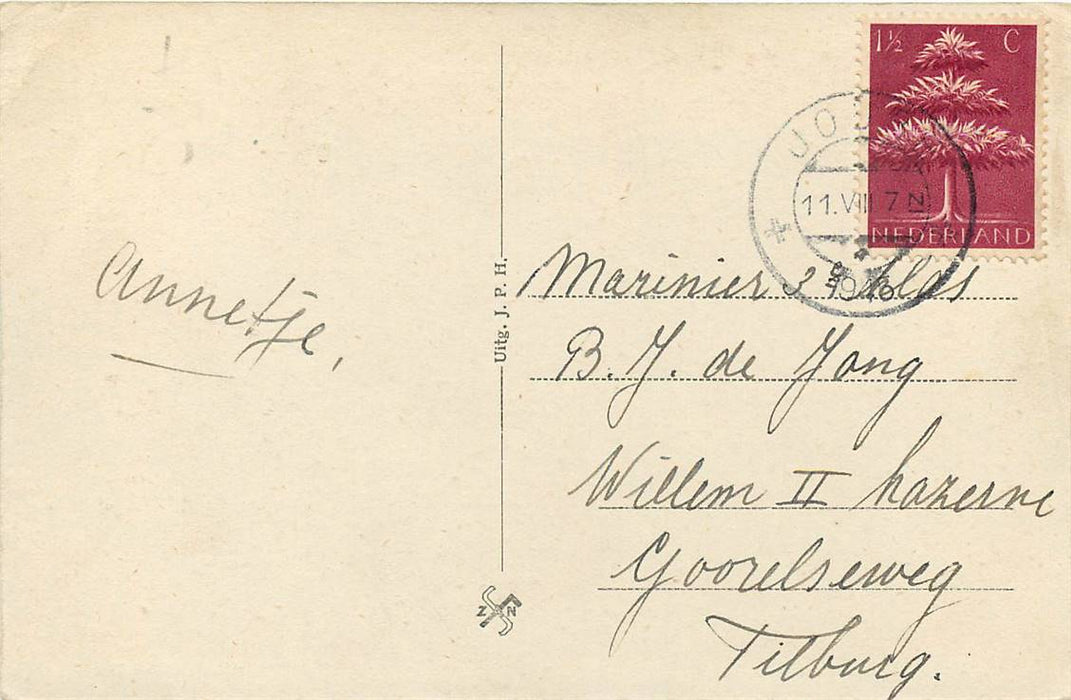 1½ C
NEDERLAND
11.VIII 7 N
1946
Annetje,
Uitg. J. P. H.
Marinier 3e klas
B. J. de Jong
Willem II kazerne
Goorelseweg
Tilburg.
Z N